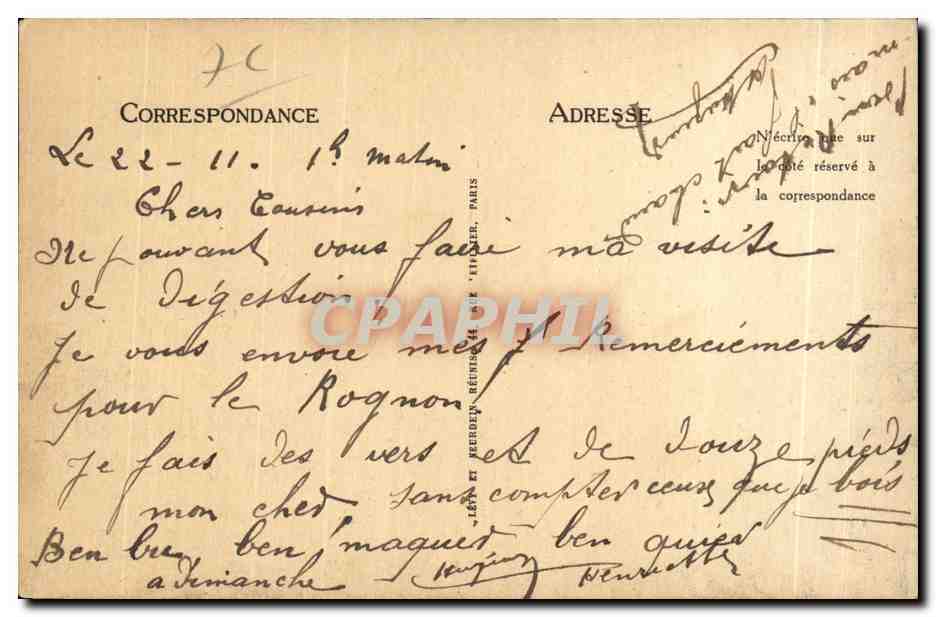 7C
CORRESPONDANCE
ADRESSE
N'écrire que sur
le côté réservé à
la correspondance
Le 22 - 11. 1h matin
Chers Cousins
Ne pouvant vous faire ma visite
de digestion
Je vous envoie mes Remerciements
pour le Rognon,
Je fais des vers et de douze pieds
mon cher, sans compter ceux que je bois
Ben bu, ben maqued ben
a Dimanche Henriette
LÉVY ET NEURDEIN RÉUNIS, 44 RUE PARIS
CPAPHIL